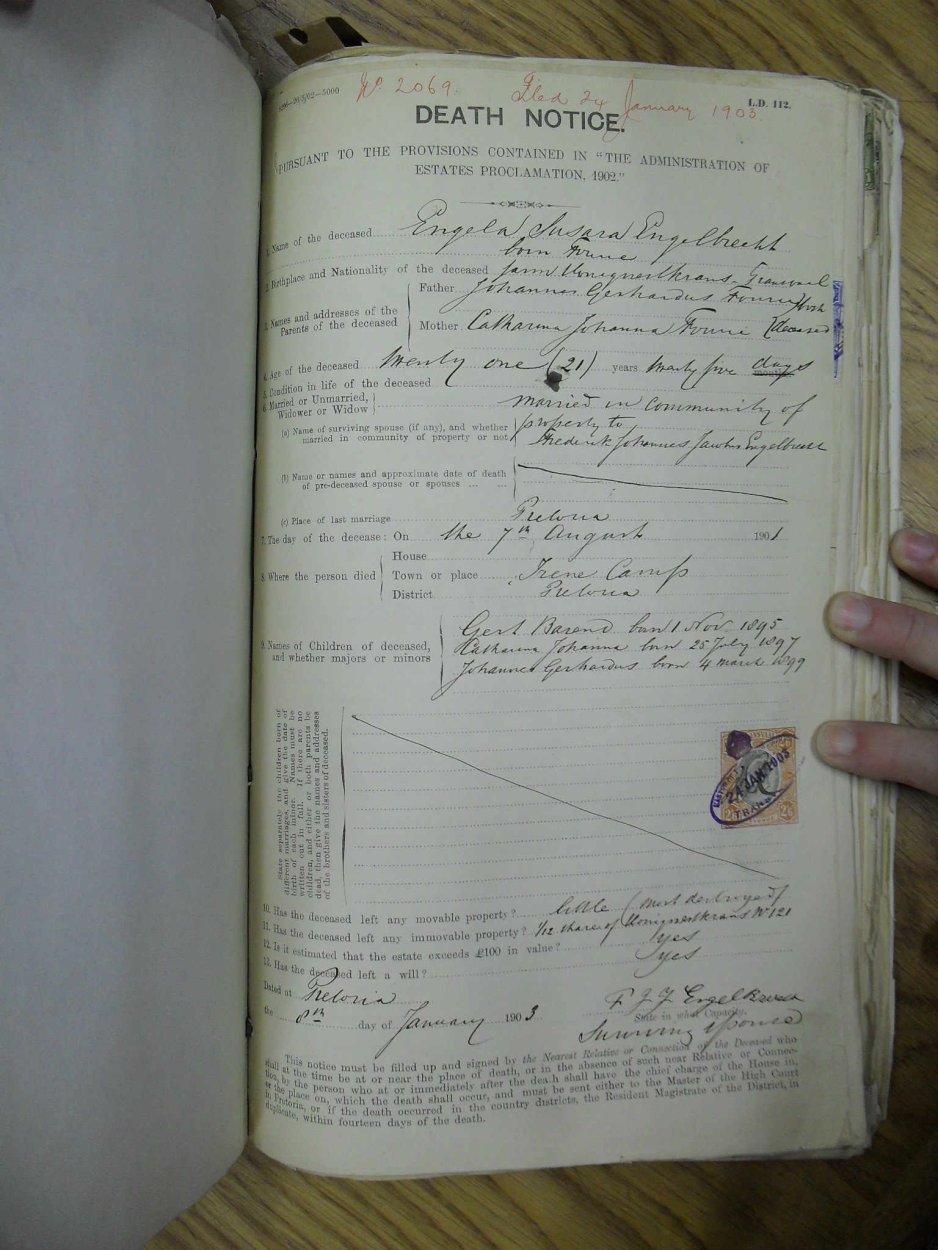 No. 2069. Filed 24 January 1903.
L.D. 112.
DEATH NOTICE.
PURSUANT TO THE PROVISIONS CONTAINED IN "THE ADMINISTRATION OF
ESTATES PROCLAMATION, 1902."
1. Name of the deceased Engela Susara Engelbrecht
born Fourie
2. Birthplace and Nationality of the deceased farm Honignestkrans Transvaal
3. Names and addresses of the Parents of the deceased
Father Johannes Gerhardus Fourie both
Mother Catharina Johanna Fourie deceased
4. Age of the deceased twenty one (21) years twenty five days months
5. Condition in life of the deceased
6. Married or Unmarried, Widower or Widow
married in community of
(a) Name of surviving spouse (if any), and whether married in community of property or not
property to
Frederik Johannes Jacobus Engelbrecht
(b) Name or names and approximate date of death
of pre-deceased spouse or spouses ... ...
(c) Place of last marriage Pretoria
7. The day of the decease: On the 7th August 1901
8. Where the person died
House
Town or place Irene Camp
District Pretoria
9. Names of Children of deceased,
and whether majors or minors
Gert Barend born 1 Nov. 1895
Catharina Johanna born 25 July 1897
Johannes Gerhardus born 4 March 1899
State separately the children born of
different marriages, and give the date of
birth of each minor. Names must be
written out in full. If there are no
children, and either or both parents be
dead, then give the names and addresses
of the brothers and sisters of deceased.
24 JAN 1903
TRANS
2/6
10. Has the deceased left any movable property? little (most destroyed)
11. Has the deceased left any immovable property? 1/12 share of Honignestkrans No 121
12. Is it estimated that the estate exceeds £100 in value? yes
13. Has the deceased left a will? yes
Dated at Pretoria
the 8th day of January 1903
F J J Engelbrecht
State in what Capacity.
Surviving spouse
This notice must be filled up and signed by the Nearest Relative or Connection of the Deceased who
shall at the time be at or near the place of death, or in the absence of such near Relative or Connec-
tion, by the person who at or immediately after the death shall have the chief charge of the House in,
or the place on, which the death shall occur, and must be sent either to the Master of the High Court
in Pretoria, or if the death occurred in the country districts, the Resident Magistrate of the District, in
duplicate, within fourteen days of the death.